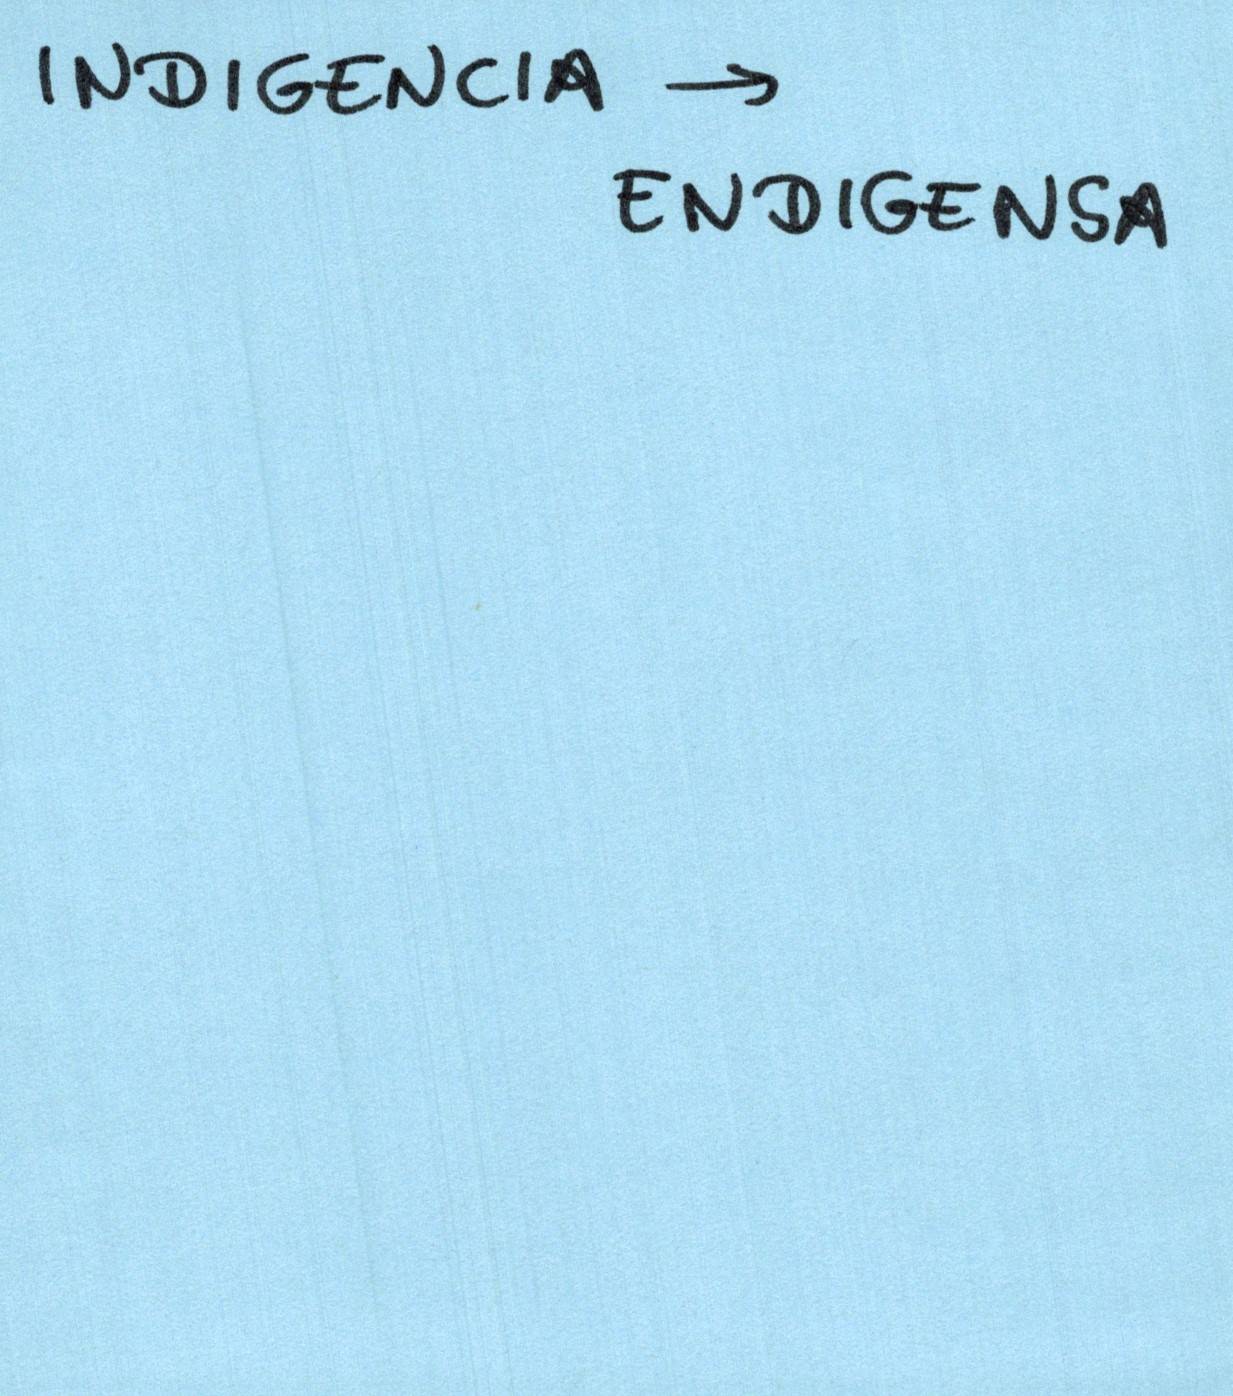 INDIGENCIA →
ENDIGENSA